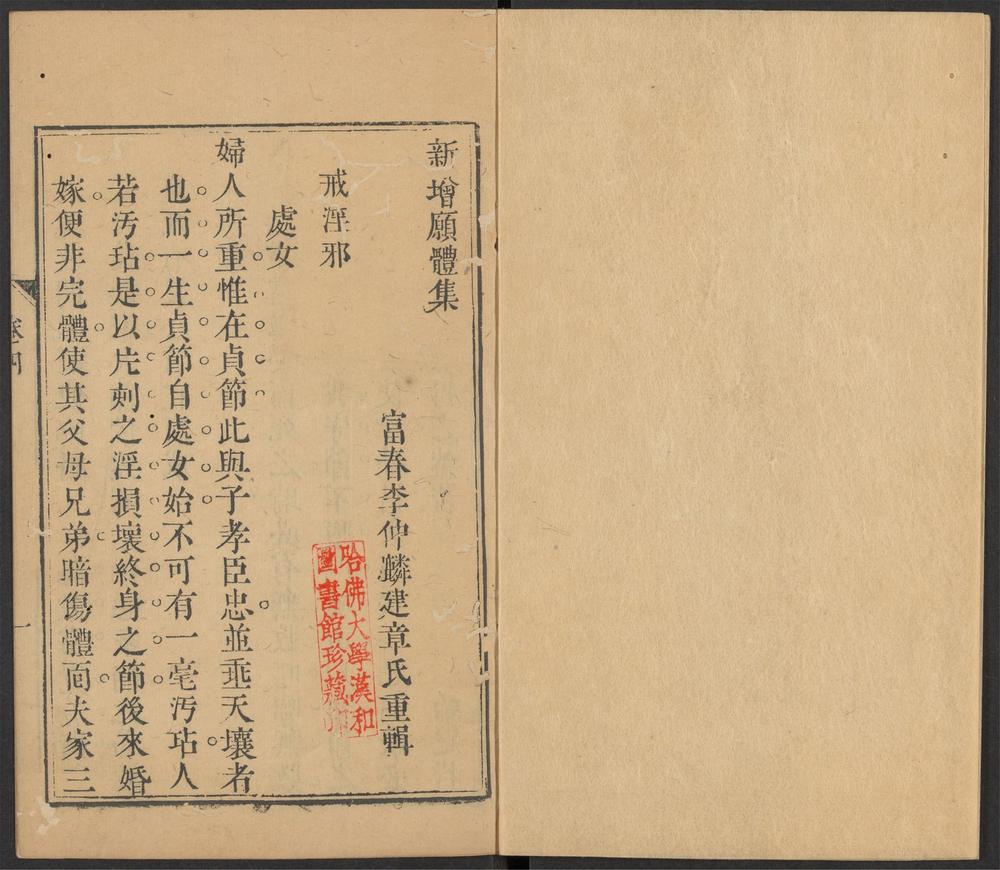 新增願體集
富春李仲麟建章氏重輯
哈佛大學漢和
圖書館珍藏印
戒淫邪
處女
婦人所重惟在貞節此與子孝臣忠並垂天壤者
也而一生貞節自處女始不可有一毫汚玷人
若汚玷是以片刻之淫損壞終身之節後來婚
嫁便非完體使其父母兄弟暗傷體面夫家三
卷四
一